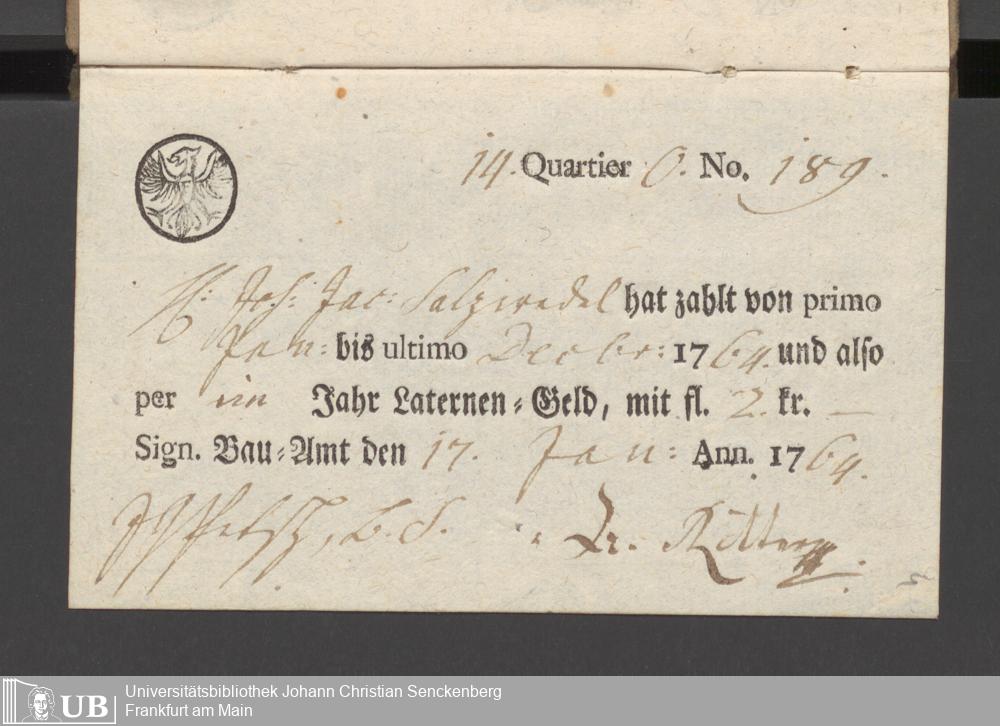 14. Quartier O. No. 189.
H: Joh: Jac: Salzwedel hat zahlt von primo
Jan: bis ultimo Decbr: 1764. und also
per im Jahr Laternen-Geld, mit fl. 2. kr. —
Sign. Bau-Amt den 17. Jan: Ann. 1764.
B. S. Dr. Ritter
UB Universitätsbibliothek Johann Christian Senckenberg
Frankfurt am Main